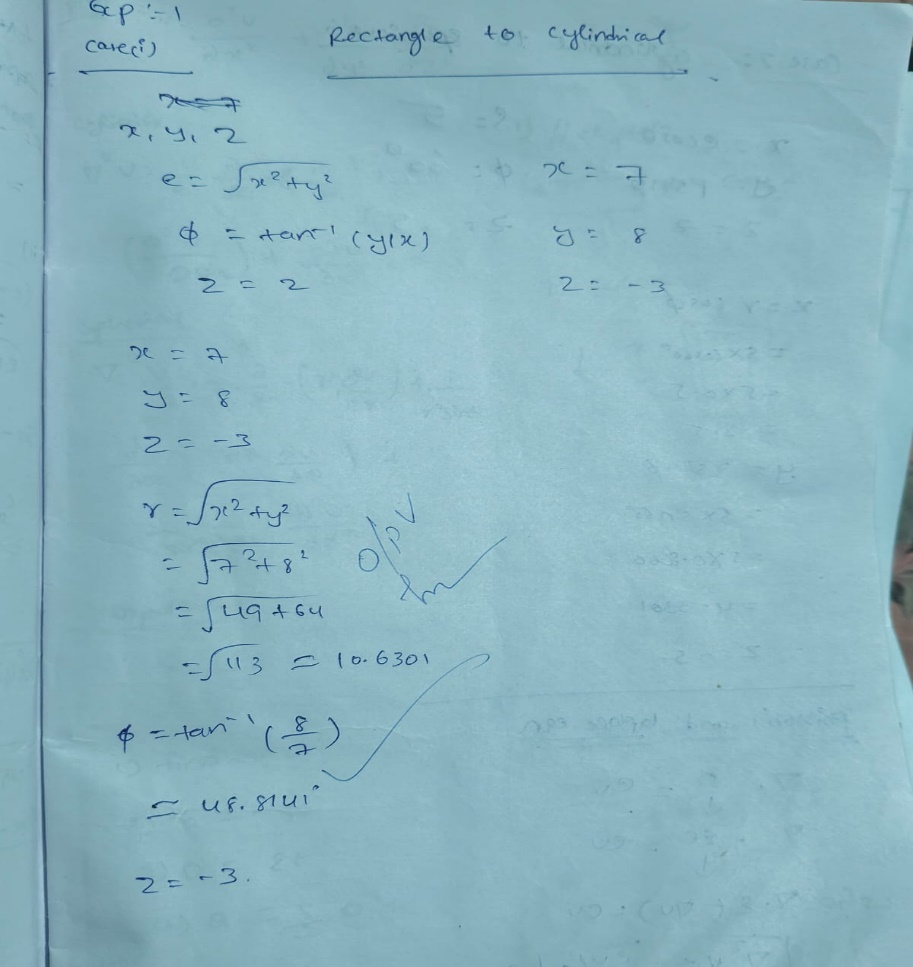 Exp :- 1
case(i)
Rectangle to cylindrical
x = 7
x, y, z
e = √x²+y²
x = 7
ϕ = tan⁻¹ (y/x)
y = 8
z = z
z = -3
x = 7
y = 8
z = -3
r = √x²+y²
= √7²+8²
= √49+64
= √113 = 10.6301
O/P V
ϕ = tan⁻¹ (8/7)
= 48.8141°
z = -3.